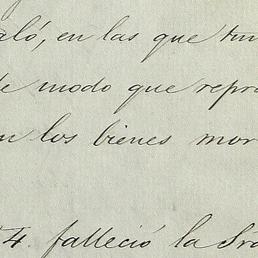 aló, en las que tuv
de modo que repre
en los bienes mor
4 falleció la Sra